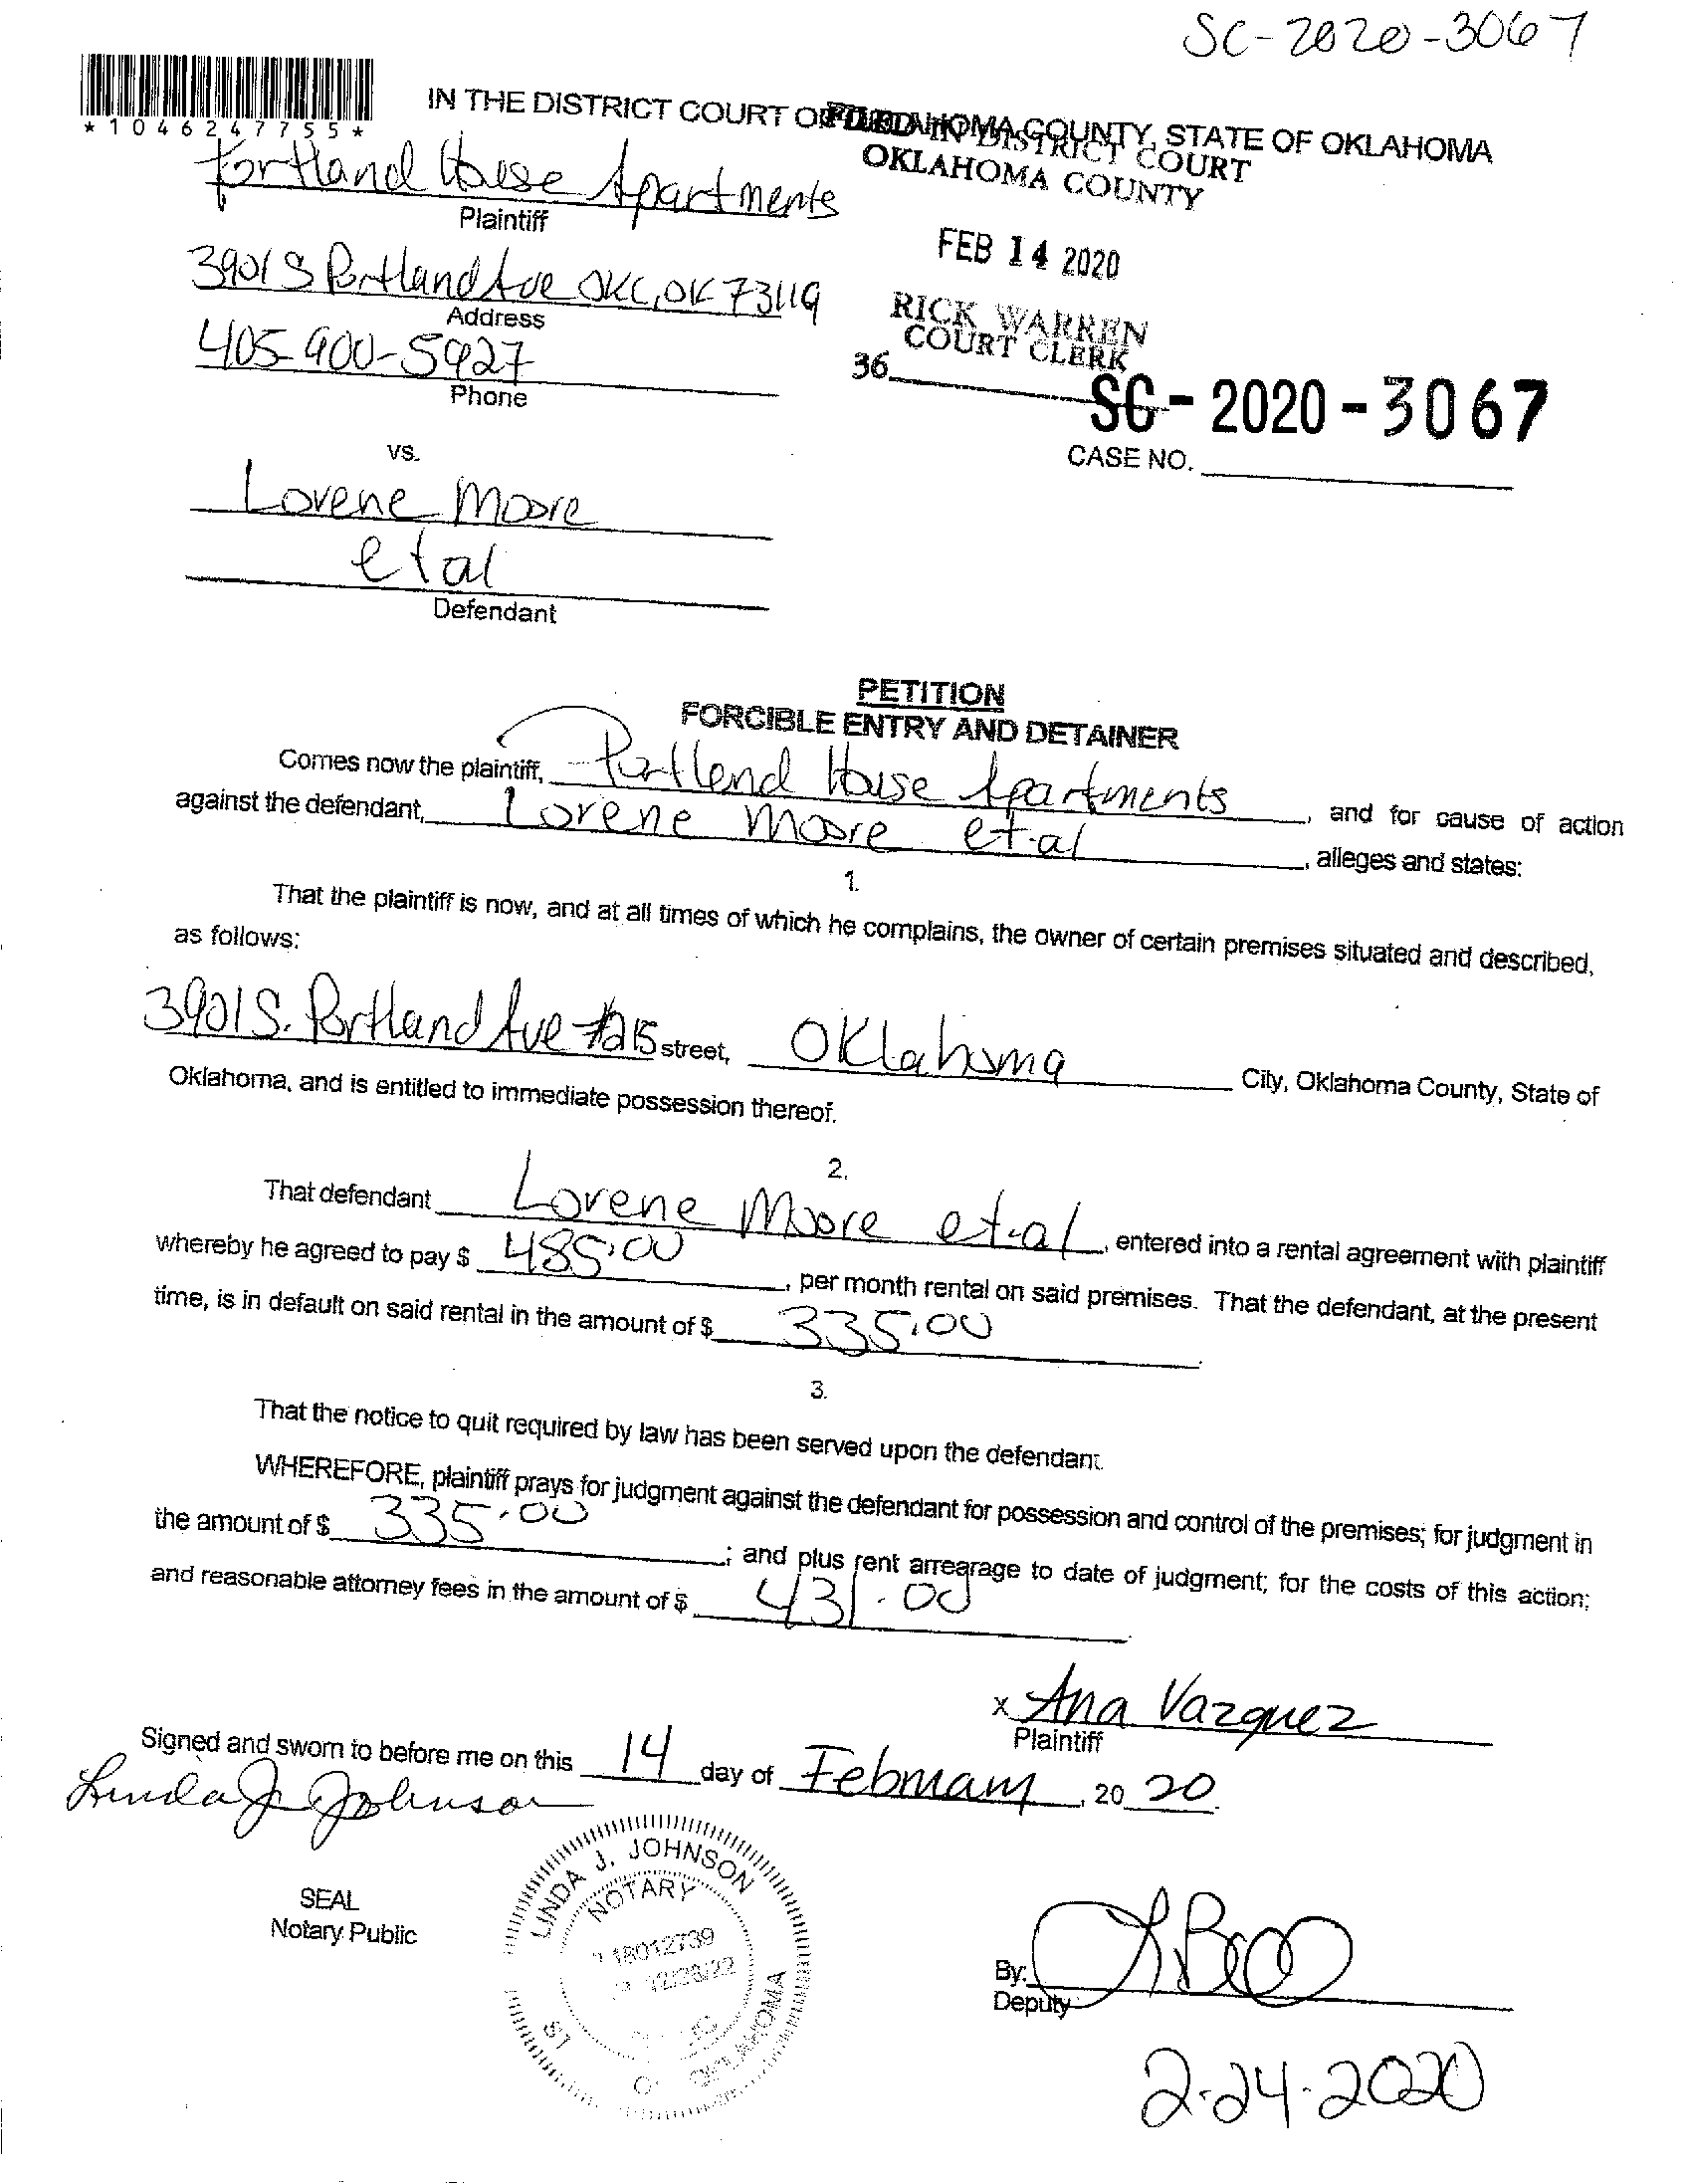 SC-2020-3067
*1046247755*
IN THE DISTRICT COURT OF OKLAHOMA COUNTY, STATE OF OKLAHOMA
FILED IN DISTRICT COURT
OKLAHOMA COUNTY
Portland House Apartments
Plaintiff
FEB 14 2020
3901 S Portland Ave OKC, OK 73119
Address
RICK WARREN
COURT CLERK
405-900-5927
Phone
36
SC-2020-3067
CASE NO.
vs.
Lorene Moore
et al
Defendant
PETITION
FORCIBLE ENTRY AND DETAINER
Comes now the plaintiff, Portland House Apartments, and for cause of action
against the defendant, Lorene Moore et-al, alleges and states:
1.
That the plaintiff is now, and at all times of which he complains, the owner of certain premises situated and described,
as follows:
3901 S. Portland Ave #215 street, Oklahoma City, Oklahoma County, State of
Oklahoma, and is entitled to immediate possession thereof.
2.
That defendant Lorene Moore et-al, entered into a rental agreement with plaintiff
whereby he agreed to pay $ 485.00, per month rental on said premises. That the defendant, at the present
time, is in default on said rental in the amount of $ 335.00
3.
That the notice to quit required by law has been served upon the defendant.
WHEREFORE, plaintiff prays for judgment against the defendant for possession and control of the premises; for judgment in
the amount of $ 335.00; and plus rent arrearage to date of judgment; for the costs of this action;
and reasonable attorney fees in the amount of $ 431.00.
x Ana Vazquez
Plaintiff
Signed and sworn to before me on this 14 day of February, 20 20.
Linda J Johnson
LINDA J. JOHNSON
NOTARY
18012739
12/28/22
OKLAHOMA
SEAL
Notary Public
By:
Deputy
2-24-2020